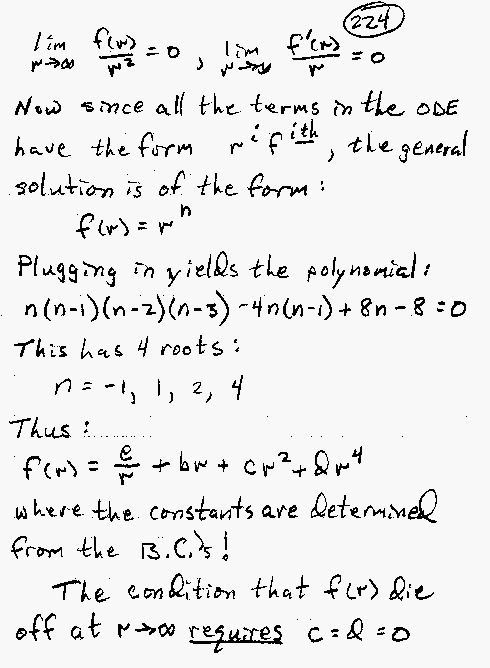 224
lim r→∞ f(r)/r² = 0 , lim r→∞ f'(r)/r = 0
Now since all the terms in the ODE
have the form rⁱ f ith , the general
solution is of the form :
f(r) = rⁿ
Plugging in yields the polynomial :
n(n-1)(n-2)(n-3) -4n(n-1) + 8n - 8 = 0
This has 4 roots :
n = -1, 1, 2, 4
Thus :
f(r) = e/r + br + cr² + dr⁴
where the constants are determined
from the B.C.'s !
The condition that f(r) die
off at r→∞ requires c = d = 0